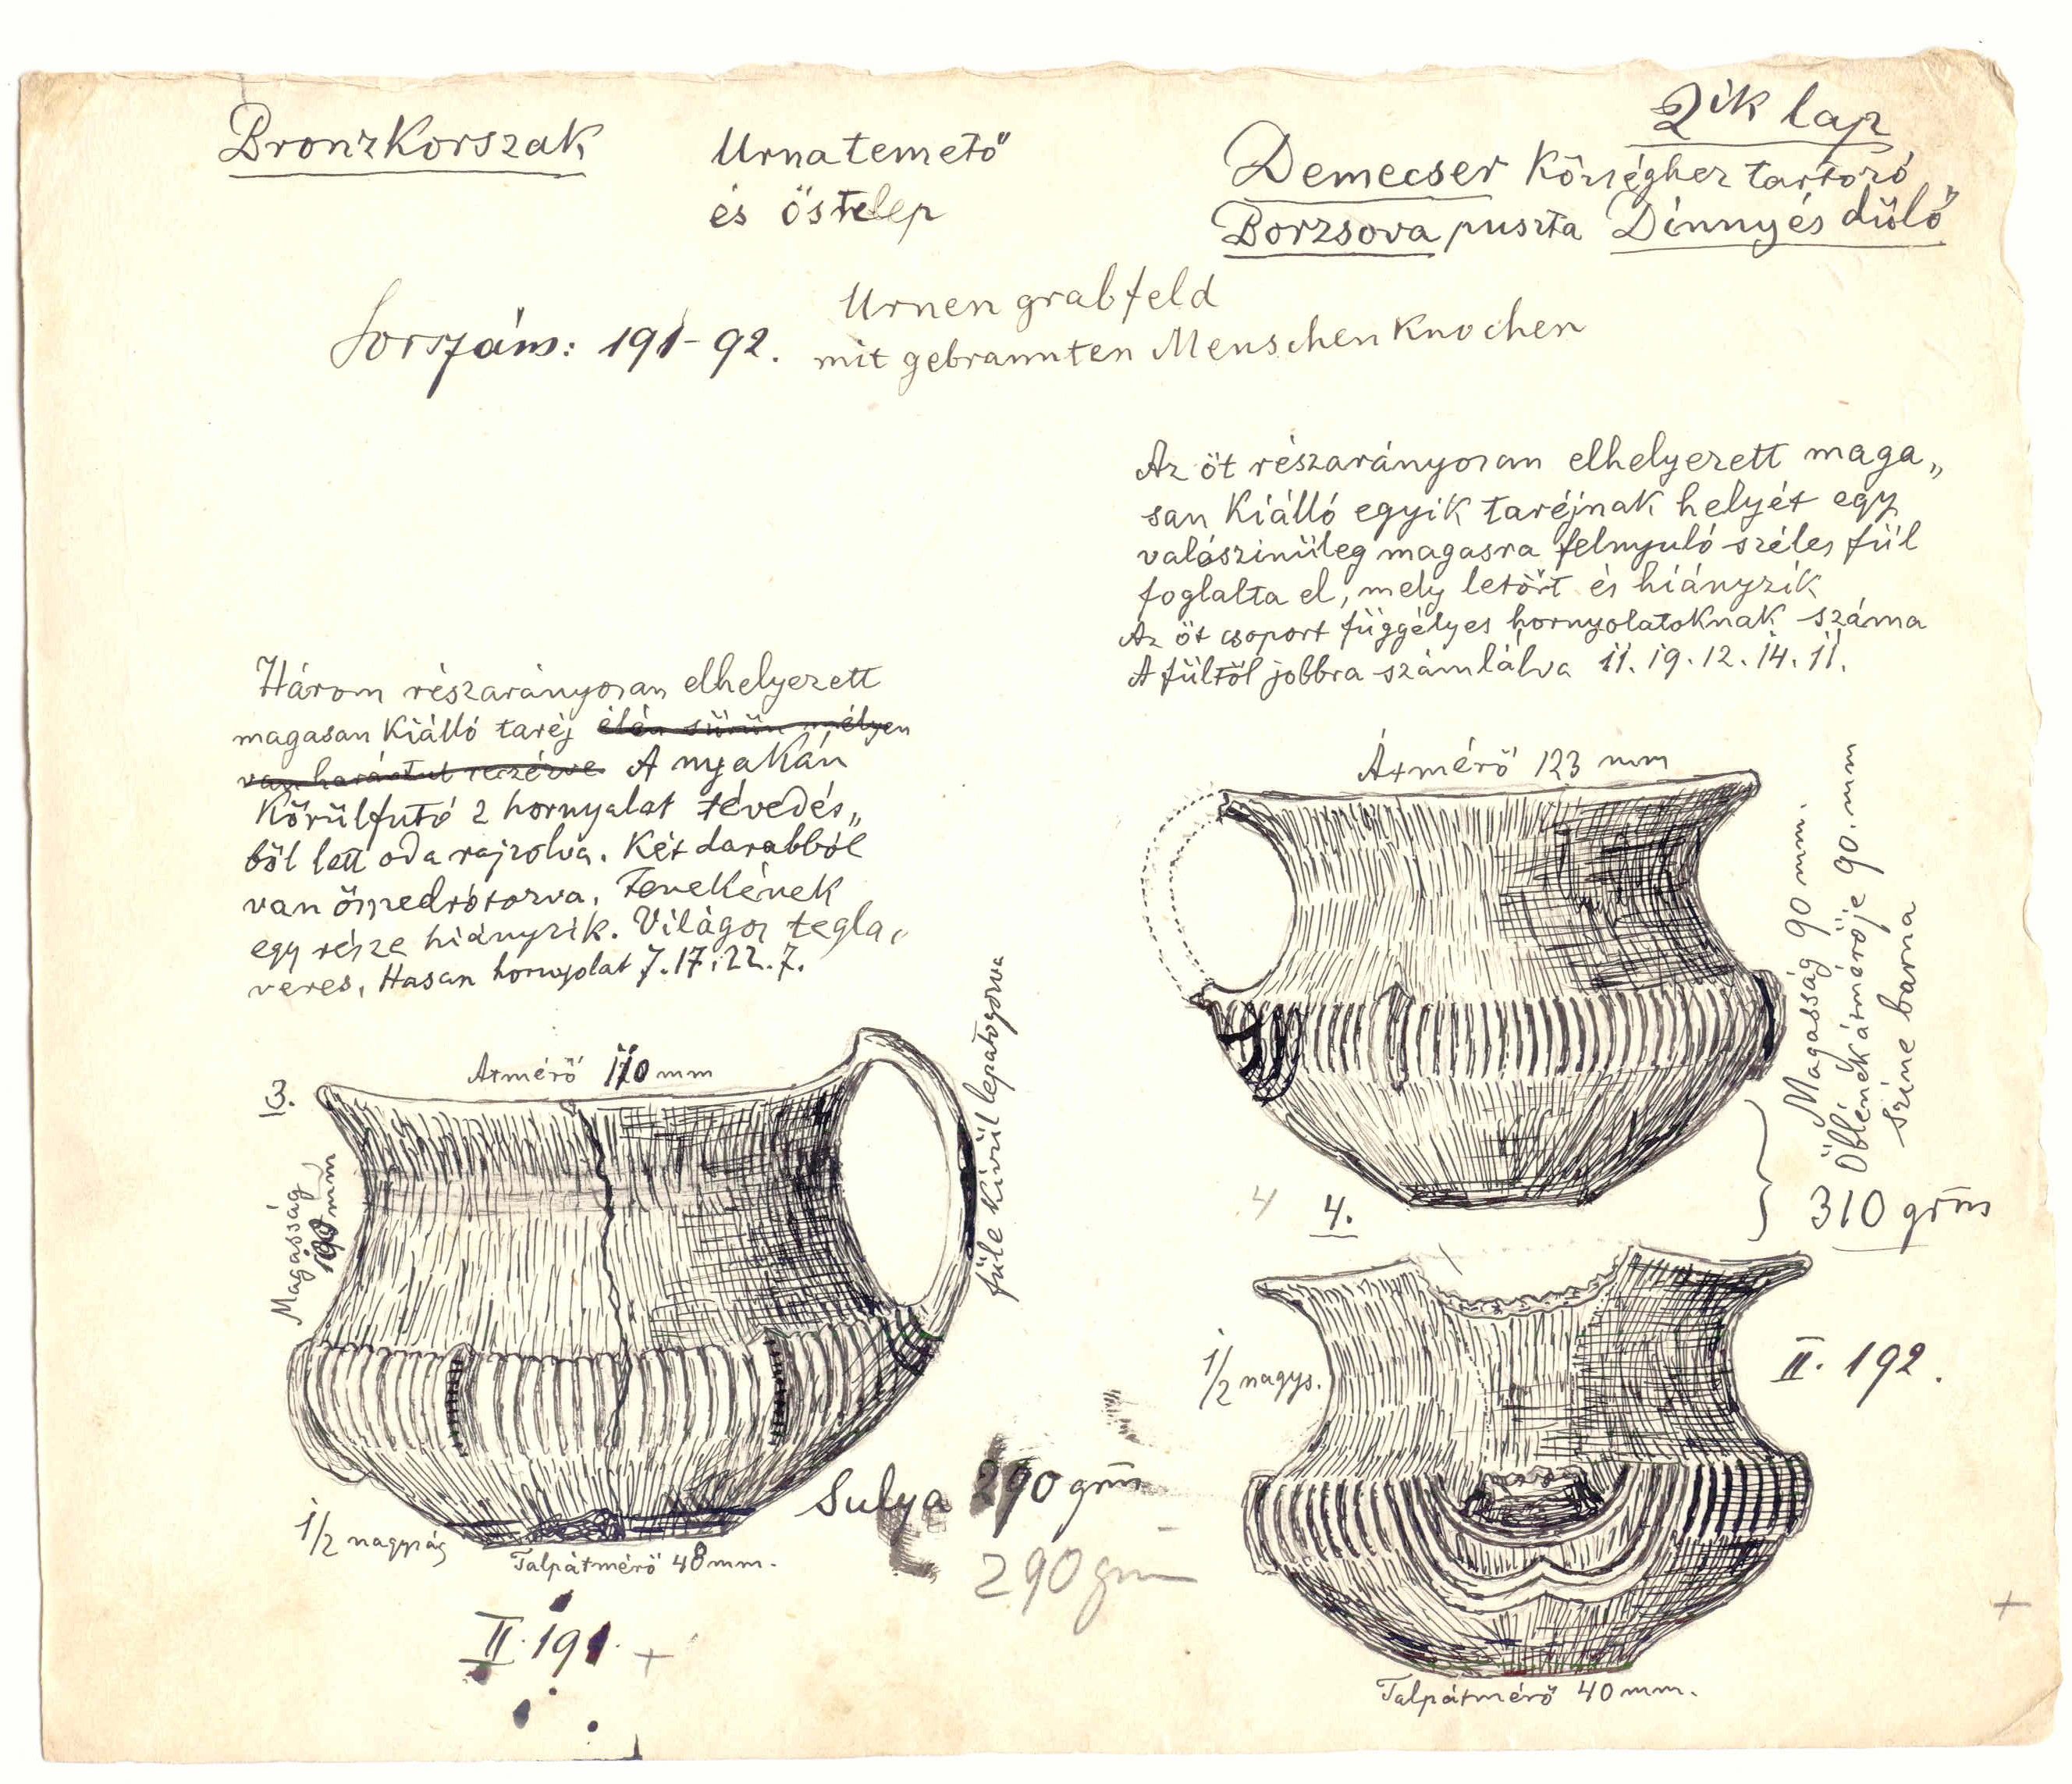 2ik lap
Bronzkorszak
Urnatemető
és őstelep
Demecser községhez tartozó
Borzsova puszta Dinnyés dülő
Sorszám: 191-92.
Urnengrabfeld
mit gebrannten Menschenknochen
Az öt részarányosan elhelyezett maga„
san kiálló egyik taréjnak helyét egy
valószinüleg magasra felnyuló széles fül
foglalta el, mely letört és hiányzik
Az öt csoport függélyes hornyolatoknak száma
A fültől jobbra számlálva 11. 19. 12. 14. 11.
Három részarányosan elhelyezett
magasan kiálló taréj élén sürün mélyen
van harántul A nyakán
körülfutó 2 hornyolat tévedés„
ből lett oda rajzolva. Két darabból
van összedrótozva. Fenekének
egy része hiányzik. Világos tegla„
veres. Hasan hornyolat 7. 17. 22. 7.
Átmérő 123 mm
Magasság 90 mm.
Öblének átmérője 90. mm
szine barna
310 grms
4
4.
3.
Átmérő 110 mm
Magasság
mm
füle kivül lepatogozva
1/2 nagyság
Talpátmérő 48 mm.
Sulya 290 grms
290 gm
II. 191.
1/2 nagys.
II. 192.
Talpátmérő 40 mm.